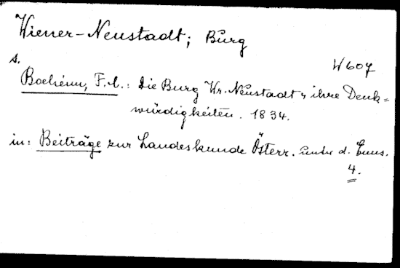 Wiener-Neustadt; Burg
W607
s.
Boeheim, F. C.: Die Burg Wr. Neustadt u. ihre Denk-
würdigkeiten. 1834.
in: Beiträge zur Landeskunde Österr. unter d. Enns.
4.